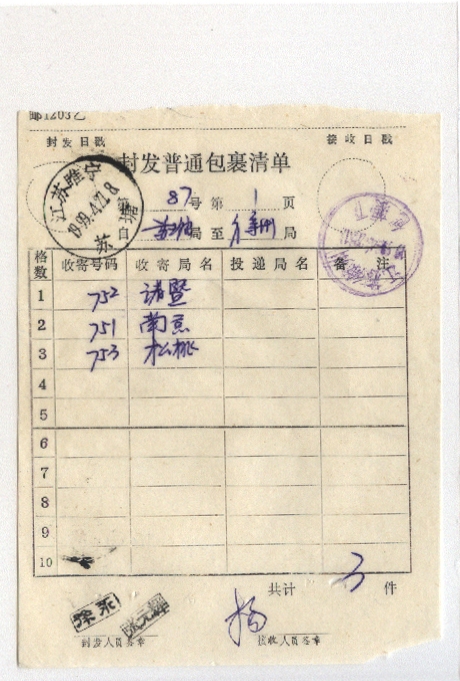 邮1203乙
封发日戳 接收日戳
封发普通包裹清单
江苏睢宁
1999.4.21.8
苏
第87号 第1页
自 局至徐州局
格数 收寄号码 收寄局名 投递局名 备注
1 752 诸暨
2 751 南京
3 753 松桃
4
5
6
7
8
9
10
共计 3 件
杨
封发人员签章 接收人员签章